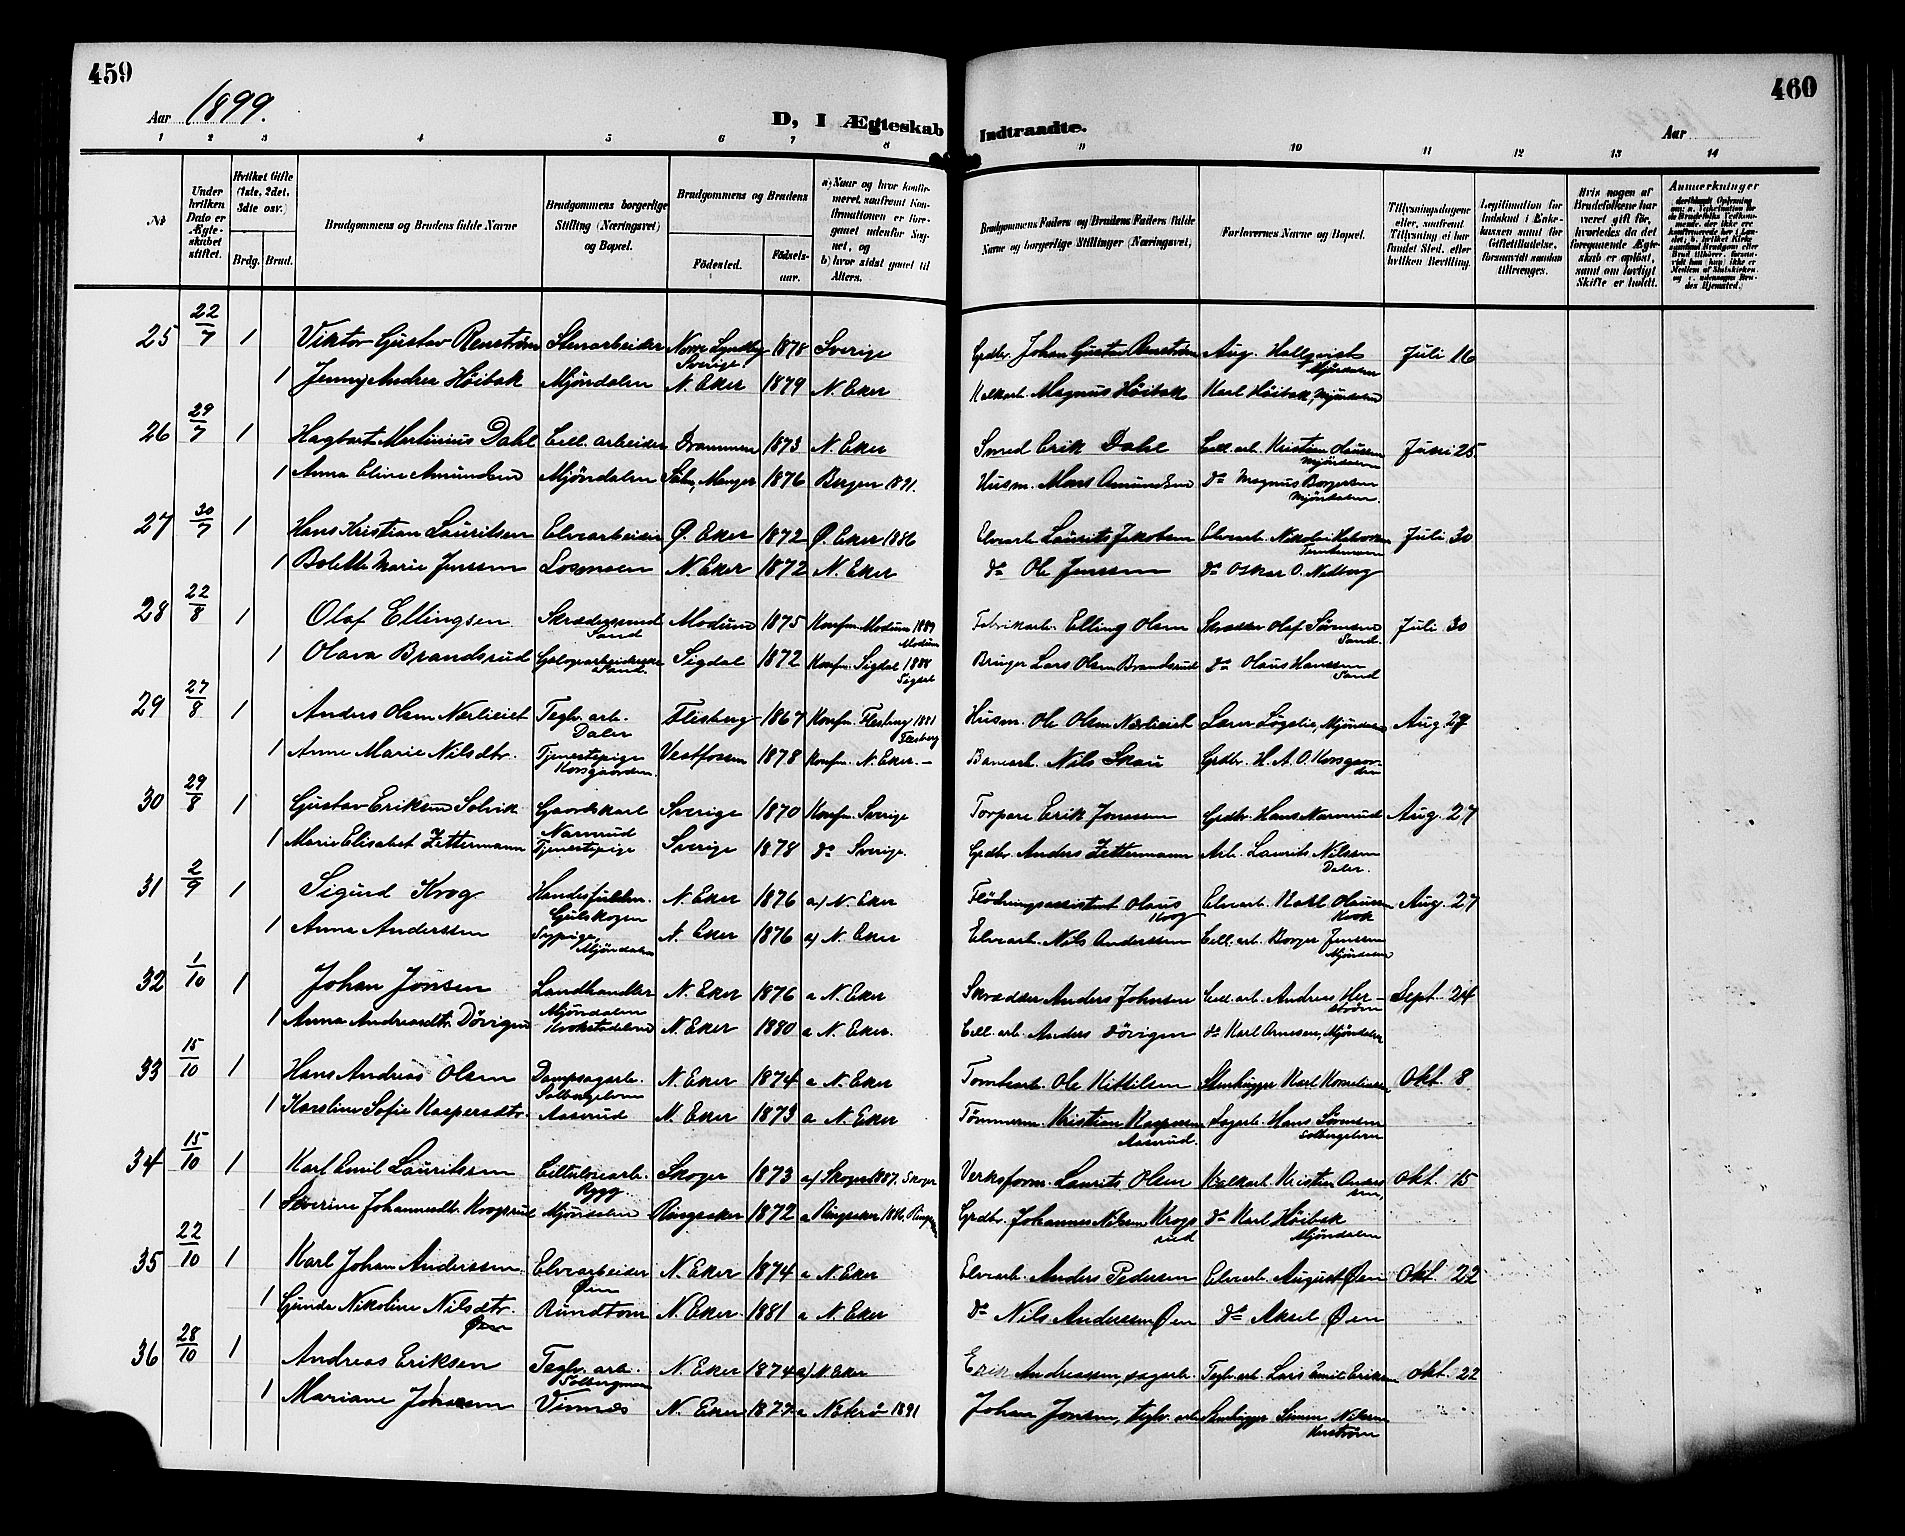 459
460
Aar 1899.
D, I Ægteskab Indtraadte.
Aar
1 2 3 4 5 6 7 8 9 10 11 12 13 14
No
Under hvilken Dato er Ægteskabet stiftet.
Hvilket Gifte (1ste, 2det, 3die osv.)
Brdg. Brud.
Brudgommens og Brudens fulde Navne
Brudgommens borgerlige Stilling (Næringsvei) og Bopæl.
Brudgommens og Brudens
Födested.
Födselsaar.
a) Naar og hvor konfirmeret, saafremt Konfirmationen er foregaaet udenfor Sognet, og
b) hvor sidst gaaet til Alters.
Brudgommens Faders og Brudens Faders fulde Navne og borgerlige Stillinger (Næringsvei)
Forlovernes Navne og Bopæl.
Tillysningsdagene eller, saafremt Tillysning ei har fundet Sted, efter hvilken Bevilling.
Legitimation for Indskud i Enkekassen samt for Giftetilladelse, forsaavidt saadan tiltrænges.
Hvis nogen af Brudefolkene har været gift för, hvorledes da det foregaaende Ægteskab er oplöst, samt om lovligt Skifte er holdt.
Anmærkninger
25 22/7 1 Viktor Gustav Renström Stenarbeider Sverige 1878 Sverige Grdbr. Johan Gustav Renström Aug. Hallqvist Mjøndalen Juli 16
1 Jenny Andrea Höibak Mjøndalen N. Eker 1879 N. Eker Kalkarb. Magnus Höibak Karl Höibak, Mjøndalen
26 29/7 1 Hagbart Martinius Dahl Cell. arbeider Drammen 1873 N. Eker Smed Erik Dahl Cell. arb. Kristian Olaussen Mjøndalen Juni 25
1 Anna Eline Amundsen Mjöndalen Manger 1876 Bergen 1891. Husm. Mons Amundsen do Magnus Borgersen Mjøndalen.
27 30/7 1 Hans Kristian Lauritsen Elvearbeider Ø. Eker 1872 Ø. Eker 1886 Elvearb. Laurits Jakobsen Elvearb. Nikolai Halvorsen Juli 30
1 Bolette Marie Jenssen Losmoen N. Eker 1872 N. Eker do Ole Jenssen do Oskar O. Nedberg
28 22/8 1 Olaf Ellingsen Skrædersvend Sand Modum 1875 Konfm. Modum 1889 Modum Fabrikarb. Elling Olsen Skrædder Olaf Sörensen Sand. Juli 30
1 Olava Brandsrud Sand. Sigdal 1872 Konfm. Sigdal 1888 Sigdal Bruger Lars Olsen Brandsrud do Olaus Hanssen Sand
29 27/8 1 Anders Olsen Nærlieiet Teglv. arb. Daler Flesberg 1867 Konfm. Flesberg 1881 Flesberg Husm. Ole Olsen Nærlieiet Lærer Løgslie, Mjøndalen Aug. 27
1 Anne Marie Nilsdtr. Tjenestepige Korsgaarden Vestfossen 1878 Konfm. N. Eker.- Banearb. Nils Skau Grdbr. H. A. O. Korsgaarden
30 29/8 1 Gustav Eriksen Solvik Gaardskarl Narverud Sverige 1870 Konfm. Sverige Torpare Erik Jonssen Grdbr. Hans Narverud Aug. 27
1 Marie Elisabet Zettermann Tjenestepige Sverige 1878 do Sverige. Grdbr. Anders Zettermann Arb. Laurits Nilssen Daler.
31 2/9 1 Sigurd Krog Handelsfuldm. Gulskogen N. Eker 1876 a) N. Eker Flødningsassistent Olaus Krog Elvearb. Olaussen Krok Aug. 27
1 Anna Anderssen Sypige, Mjøndalen N. Eker 1876 a) N. Eker Elvearb. Nils Anderssen Cell. arb. Borger Jenssen Mjøndalen
32 1/10 1 Johan Jönsen Landhandler Mjöndalen N. Eker 1876 a N. Eker Skrædder Anders Johnsen Cell. arb. Andreas Herström Sept. 24
1 Anna Andreasdtr. Dövigen Krokstadelven N. Eker 1880 a N. Eker. Cell. arb. Anders Dövigen do Karl Arnesen, Mjöndalen
33 15/10 1 Hans Andreas Olsen Dampsagarb. Solbergelven N. Eker 1874 a N. Eker Tomtearb. Ole Kittilsen Stenhugger Karl Korneliussen Okt. 8
1 Karoline Sofie Kaspersdtr. Aaserud N. Eker 1873 a N. Eker Tömmerm. Kristian Kaspersen Aaserud. Sagarb. Hans Sörensen Solbergelven
34 15/10 1 Karl Emil Lauritssen Cellulosearb. Rygg Skoger 1873 a) Skoger 1887. Skoger Verksform. Laurits Olsen Kalkarb. Kristian Anderssen, Okt. 15
1 Severine Johannesdt. Krogsrud Mjöndalen Ringsaker 1872 a Ringsaker 1886, Grdbr. Johannes Nilsen Krogsrud do Karl Höibak Mjöndalen
35 22/10 1 Karl Johan Anderssen. Elvearbeider Øen N. Eker 1874 a N. Eker Elvearb. Anders Pedersen Elvearb. August Øen Okt. 22
1 Gunda Nikoline Nilsdtr. Øen Rundtom N. Eker 1881 a N. Eker do Nils Anderssen Øen do Aksel Øen
36 28/10 1 Andreas Eriksen Teglv. arb. Solbergmoen N. Eker 1874 a) N. Eker Erik Andreassen, sagarb. Teglv. arb. Lars Emil Eriksen Okt. 22
1 Mariane Johnsen Vinnæs N. Eker 1877 a N. Eker 1891 Johan Jonsen, teglv. arb. Stenhugger Simen Nilssen Herström